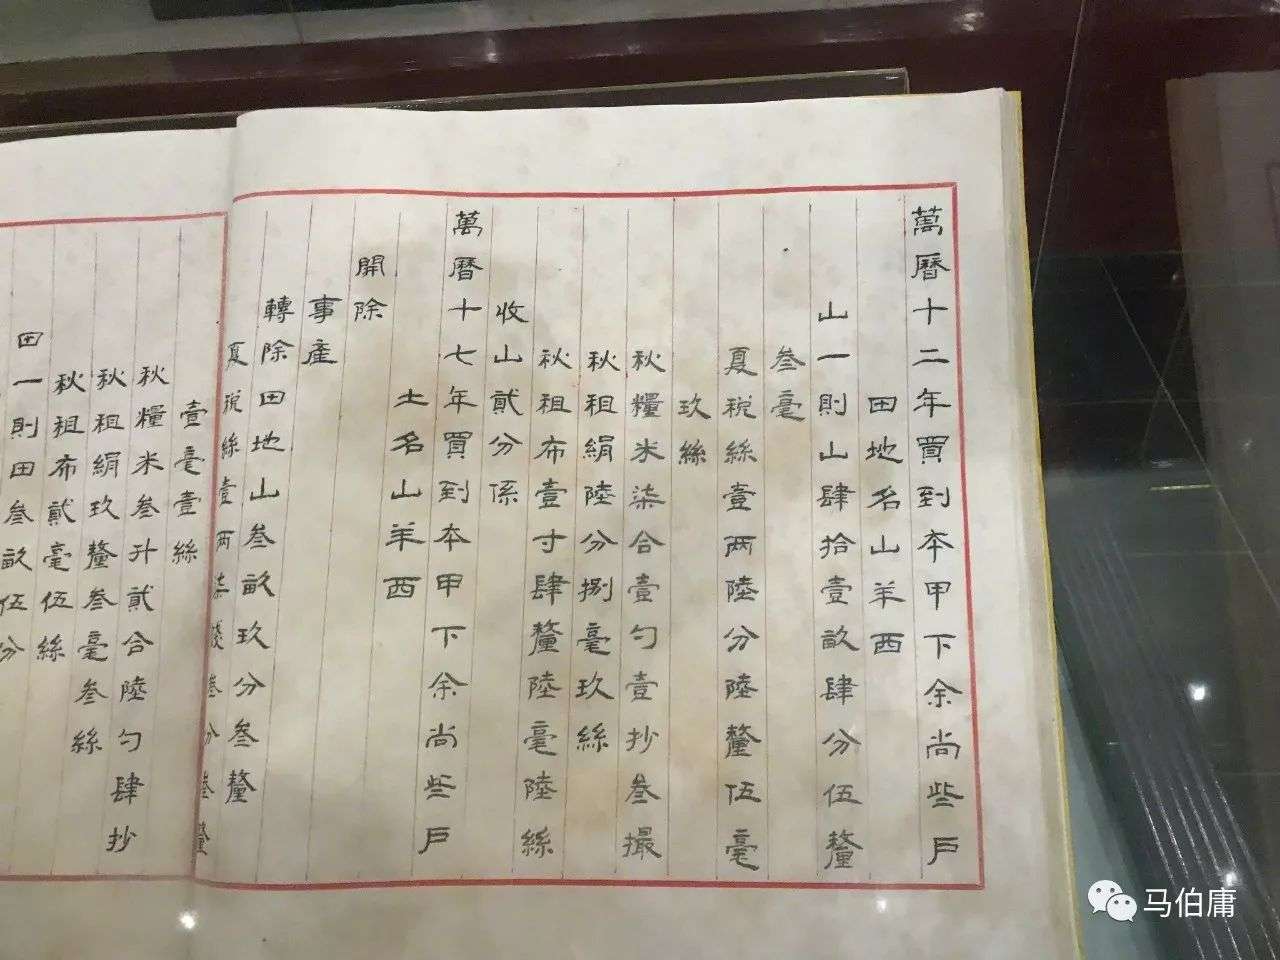 萬曆十二年買到本甲下余尚些戶
田地名山羊西
山一則山肆拾壹畝肆分伍釐
叁毫
夏稅絲壹两陸分陸釐伍毫
玖絲
秋糧米柒合壹勺壹抄叁撮
秋租絹陸分捌毫玖絲
秋租布壹寸肆釐陸毫陸絲
收山貳分係
萬曆十七年買到本甲下余尚些戶
土名山羊西
開除
事產
轉除田地山叁畝玖分叁釐
夏稅絲壹两柒錢叁分叁釐
壹毫壹絲
秋糧米叁升貳合陸勺肆抄
秋租絹玖釐叁毫叁絲
秋祖布貳毫伍絲
田一則田叁畝伍分
马伯庸